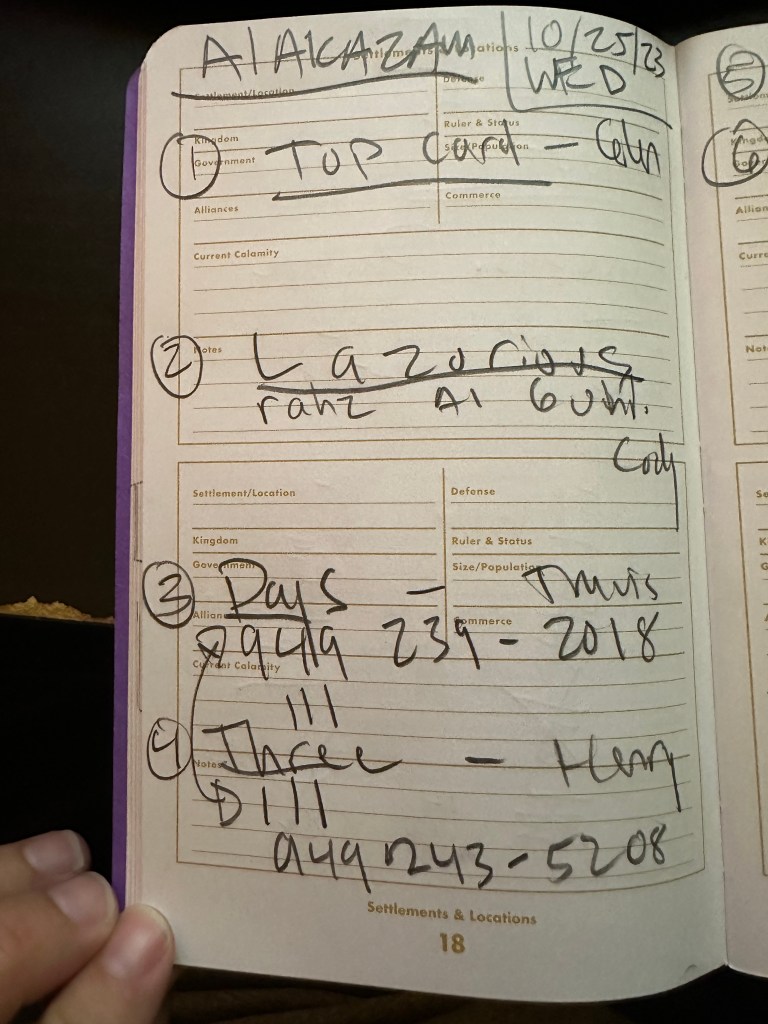 AlAKAZAM
Settlements & Locations
10/25/23
WED
Settlement/Location
Defense
Kingdom
Ruler & Status
Government
Size/Population
① Top Card - Colin
Alliances
Commerce
Current Calamity
② Notes
Lazorious
Al
Cody
Settlement/Location
Defense
Kingdom
Ruler & Status
Government
Size/Population
③ Days - Travis
Alliances
Commerce
949 239-2018
Current Calamity
III
④ Three - Henry
Notes
D III
949 243-5208
Settlements & Locations
18
⑤
⑥